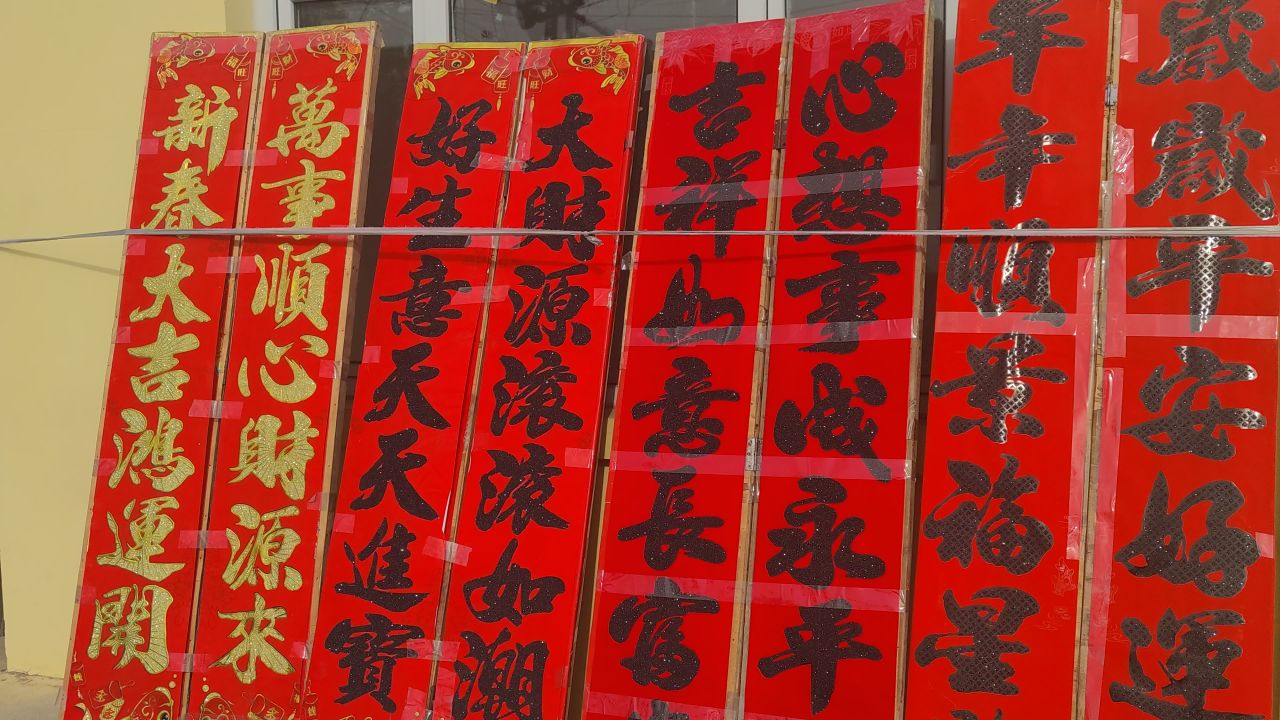 新春大吉鴻運開
萬事順心財源來
好生意天天進寶
大財源滾滾如潮
吉祥如意長富
心想事成永平
年年順景福星
歲歲平安好運